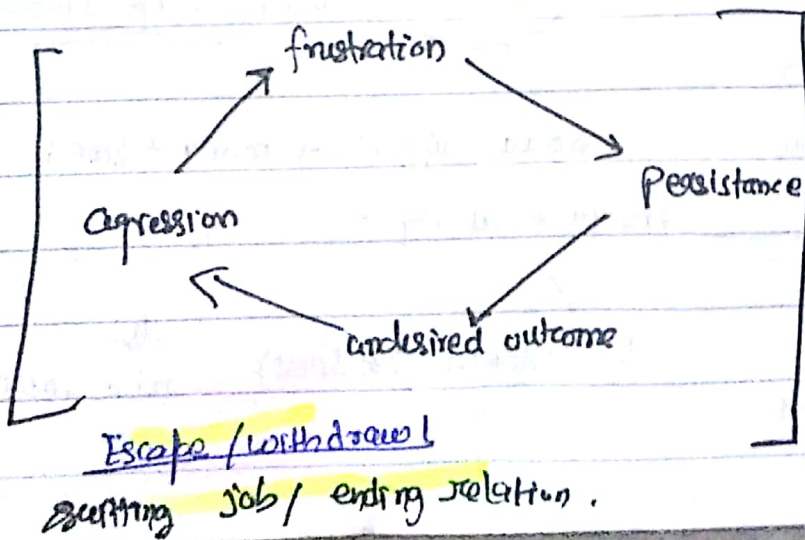 frustration
Persistance
agression
undesired outcome
Escape / withdrawl
quitting job / ending relation.